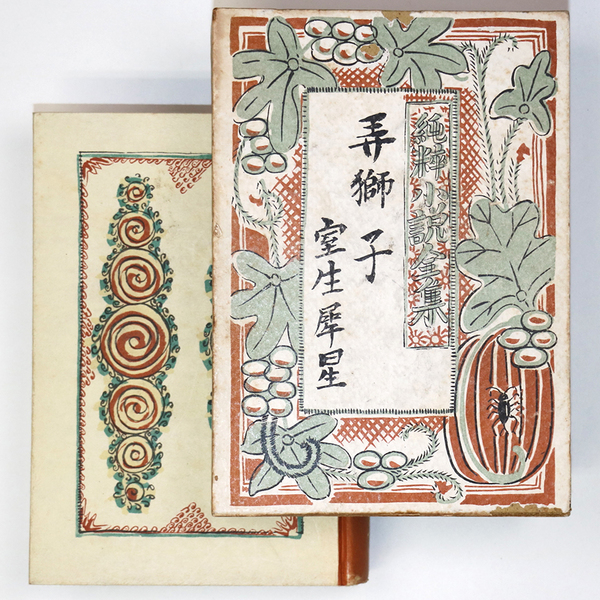 純粋小説全集
弄獅子
室生犀星